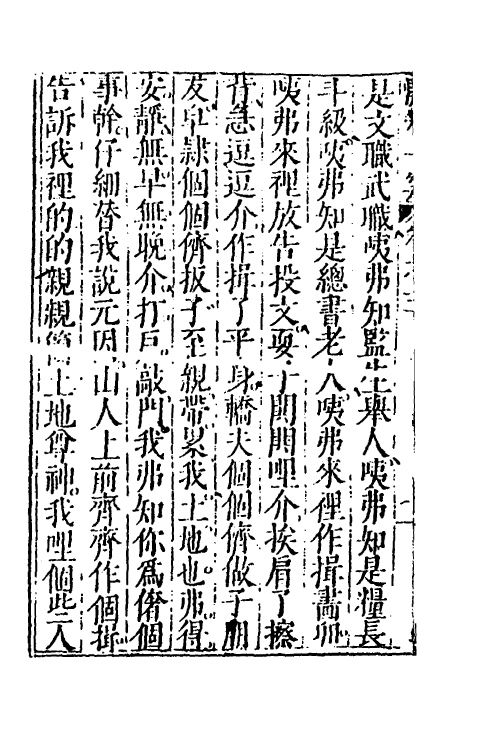 是文職武職咦弗知監生舉人咦弗知是糧長
斗級咦弗知是總書老人咦弗來裡作揖畫卯
咦弗來裡放告投文耍子鬧鬧哩介挨肩了擦
背急逗逗介作揖了平身轎夫個個儕做子朋
友皁隸個個儕扳子至親帶累我土地也弗得
安靜無早無晚介打戶敲門我弗知你爲奢個
事幹仔細替我說元因山人上前齊齊作個揖
告訴我裡的的親親個土地尊神我哩個些人